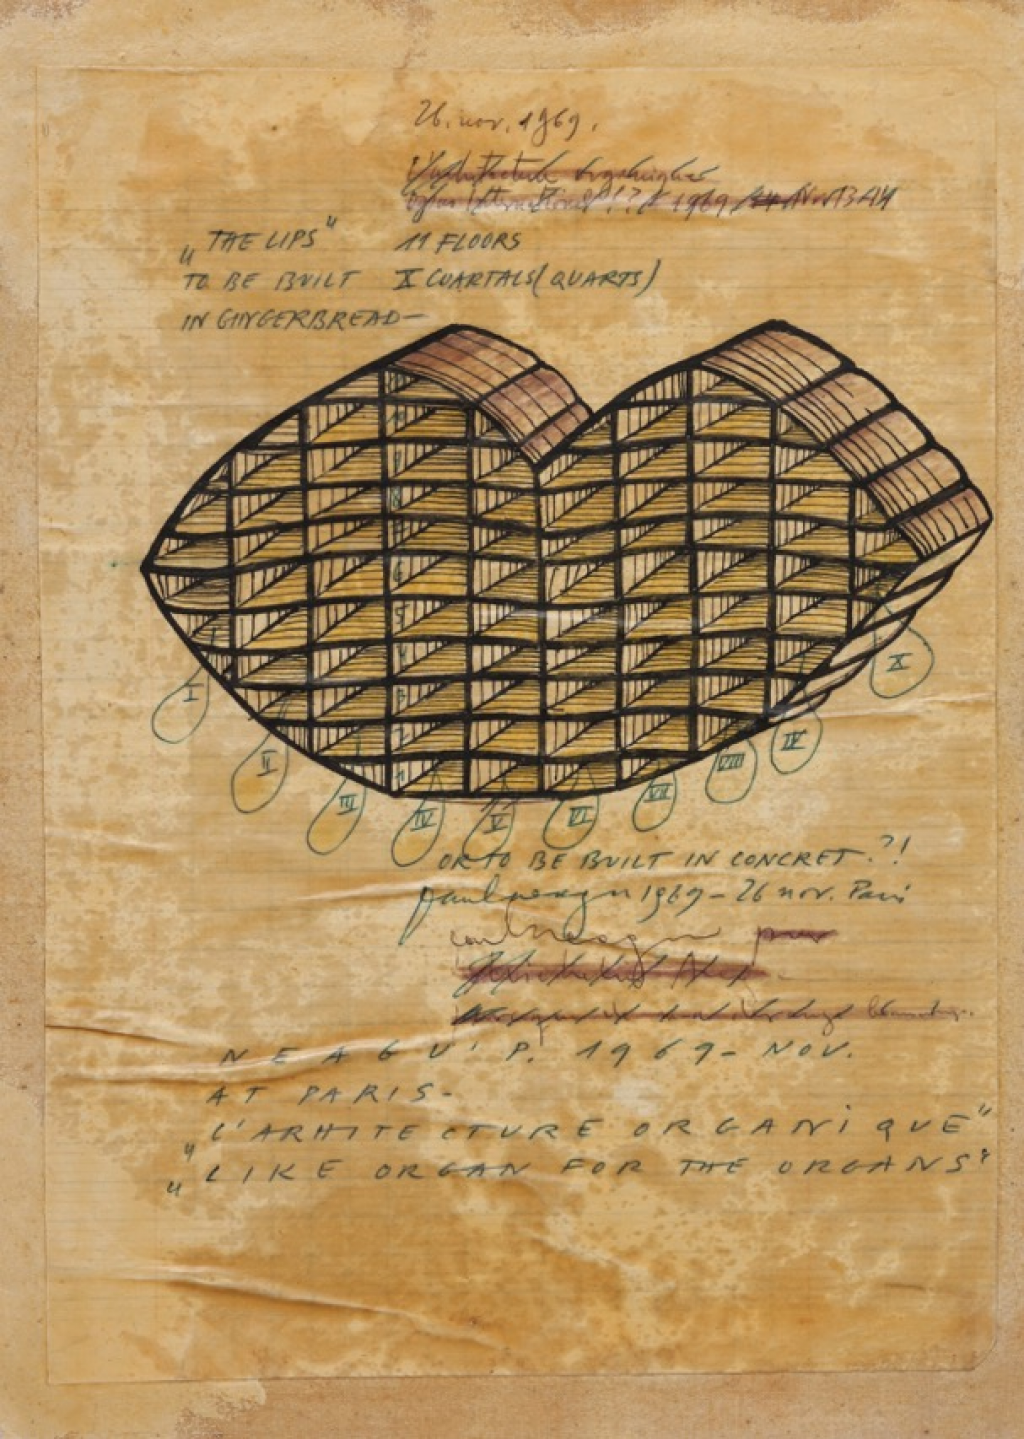 26. nov. 1969.
1969
„THE LIPS"
11 FLOORS
TO BE BUILT
X CUARTALS (QUARTS)
IN GINGERBREAD—
10
9
8
6
5
4
3
2
1
I
II
III
IV
V
VI
VII
VIII
IV
X
OR TO BE BUILT IN CONCRET.?!
paul neagu 1969 – 26 nov. Paris
paul neagu
NEAGU' P. 1969– NOV.
AT PARIS–
„L'ARHITECTURE ORGANiQUE"
„LIKE ORGAN FOR THE ORGANS"